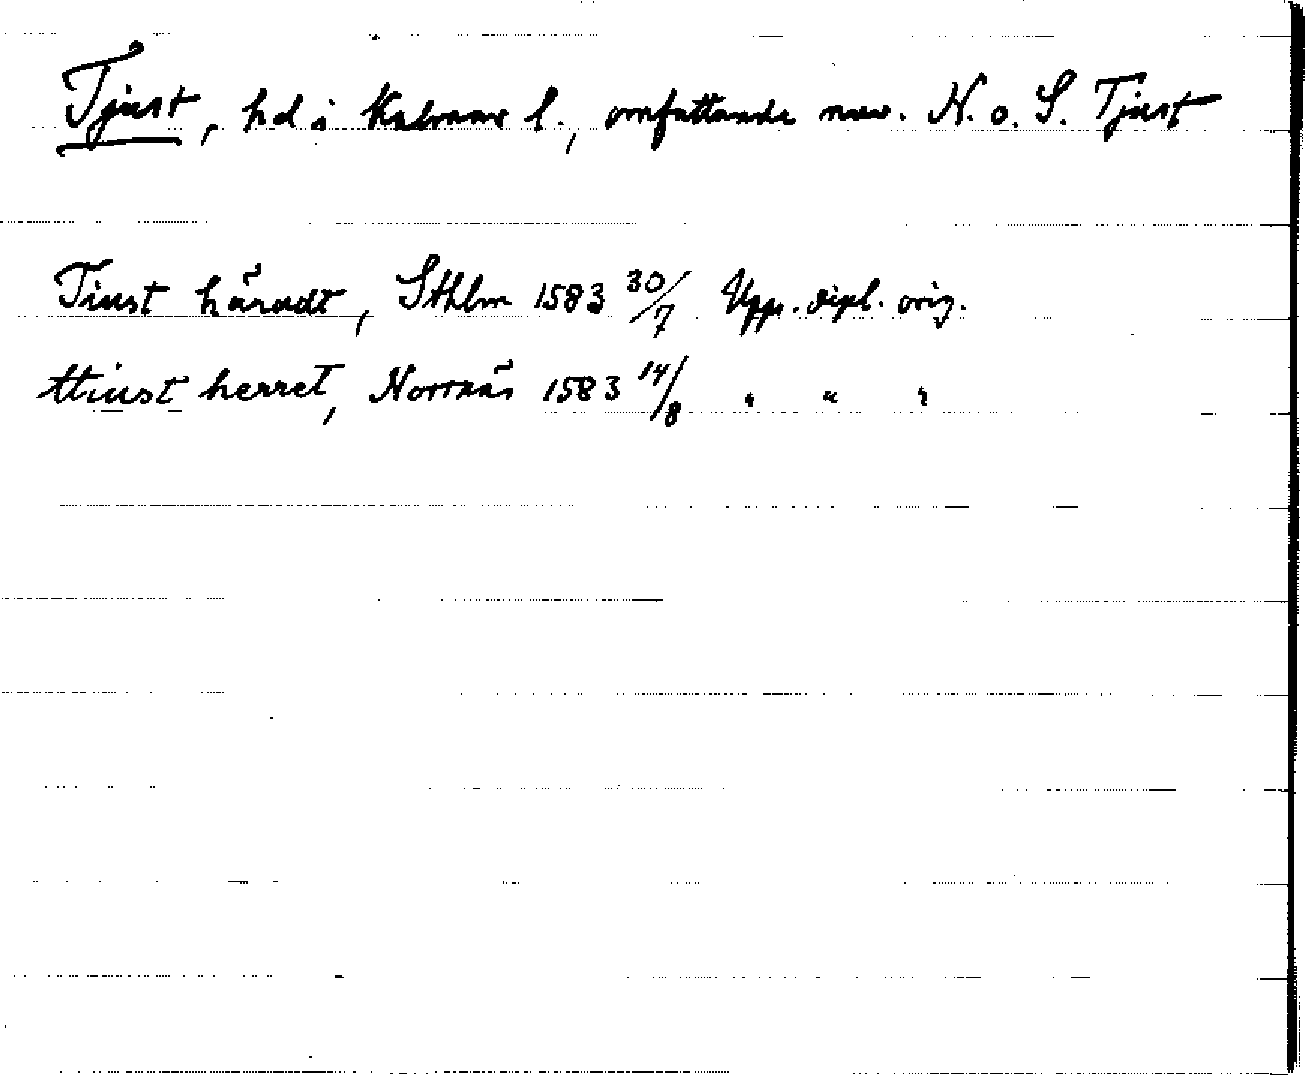 Tjust, hd i Kalmar l., omfattande nuv. N. o. S. Tjust
Tiust häradt, Sthlm 1583 30/7 Upps. dipl. orig.
ttiust herret, Norrnäs 1583 14/8 " " "